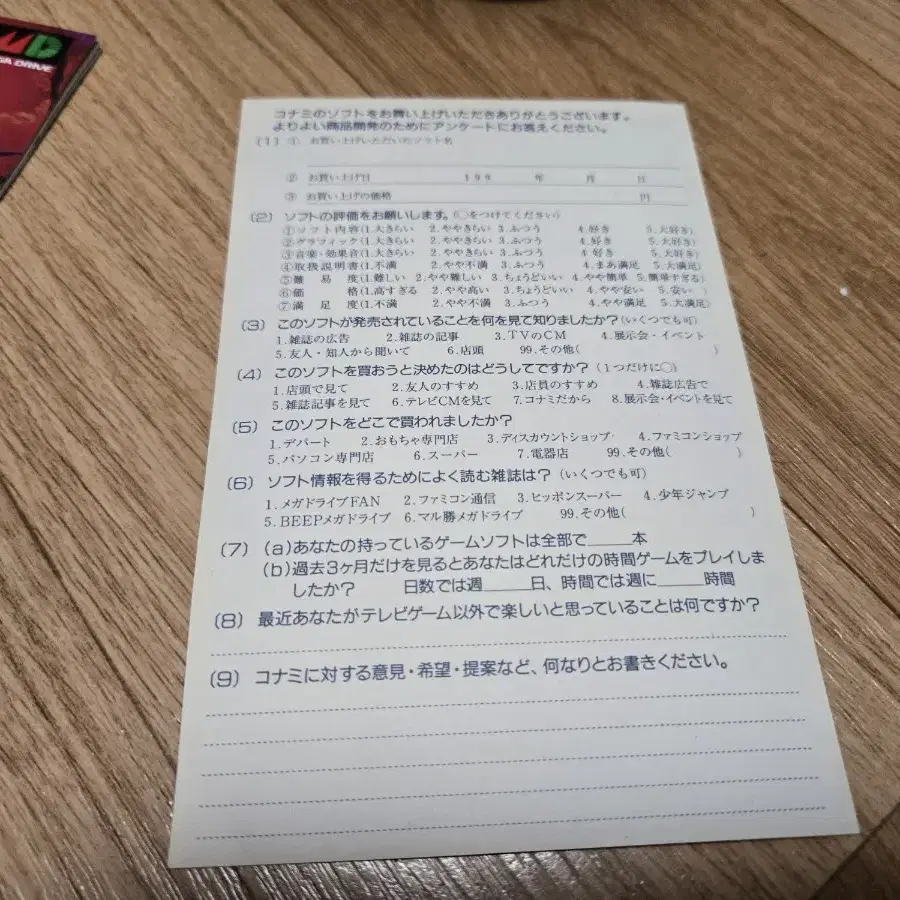 MD
GA DRIVE
コナミのソフトをお買い上げいただきありがとうございます。
よりよい商品開発のためにアンケートにお答えください。
(1) ① お買い上げいただいたソフト名
② お買い上げ日 199 年 月 日
③ お買い上げの価格 円
(2) ソフトの評価をお願いします。(○をつけてください)
①ソフト内容(1.大きらい 2.ややきらい 3.ふつう 4.好き 5.大好き)
②グラフィック(1.大きらい 2.ややきらい 3.ふつう 4.好き 5.大好き)
③音楽・効果音(1.大きらい 2.ややきらい 3.ふつう 4.好き 5.大好き)
④取扱説明書(1.不満 2.やや不満 3.ふつう 4.まあ満足 5.大満足)
⑤難易度(1.難しい 2.やや難しい 3.ちょうどいい 4.やや簡単 5.簡単すぎる)
⑥価格(1.高すぎる 2.やや高い 3.ちょうどいい 4.やや安い 5.安い)
⑦満足度(1.不満 2.やや不満 3.ふつう 4.やや満足 5.大満足)
(3) このソフトが発売されていることを何を見て知りましたか?(いくつでも可)
1.雑誌の広告 2.雑誌の記事 3.TVのCM 4.展示会・イベント
5.友人・知人から聞いて 6.店頭 99.その他( )
(4) このソフトを買おうと決めたのはどうしてですか?(1つだけに○)
1.店頭で見て 2.友人のすすめ 3.店員のすすめ 4.雑誌広告で
5.雑誌記事を見て 6.テレビCMを見て 7.コナミだから 8.展示会・イベントを見て
(5) このソフトをどこで買われましたか?
1.デパート 2.おもちゃ専門店 3.ディスカウントショップ 4.ファミコンショップ
5.パソコン専門店 6.スーパー 7.電器店 99.その他( )
(6) ソフト情報を得るためによく読む雑誌は?(いくつでも可)
1.メガドライブFAN 2.ファミコン通信 3.ヒッポンスーパー 4.少年ジャンプ
5.BEEPメガドライブ 6.マル勝メガドライブ 99.その他( )
(7) (a)あなたの持っているゲームソフトは全部で_____本
(b)過去3ヶ月だけを見るとあなたはどれだけの時間ゲームをプレイしま
したか? 日数では週_____日、時間では週に_____時間
(8) 最近あなたがテレビゲーム以外で楽しいと思っていることは何ですか?
(9) コナミに対する意見・希望・提案など、何なりとお書きください。